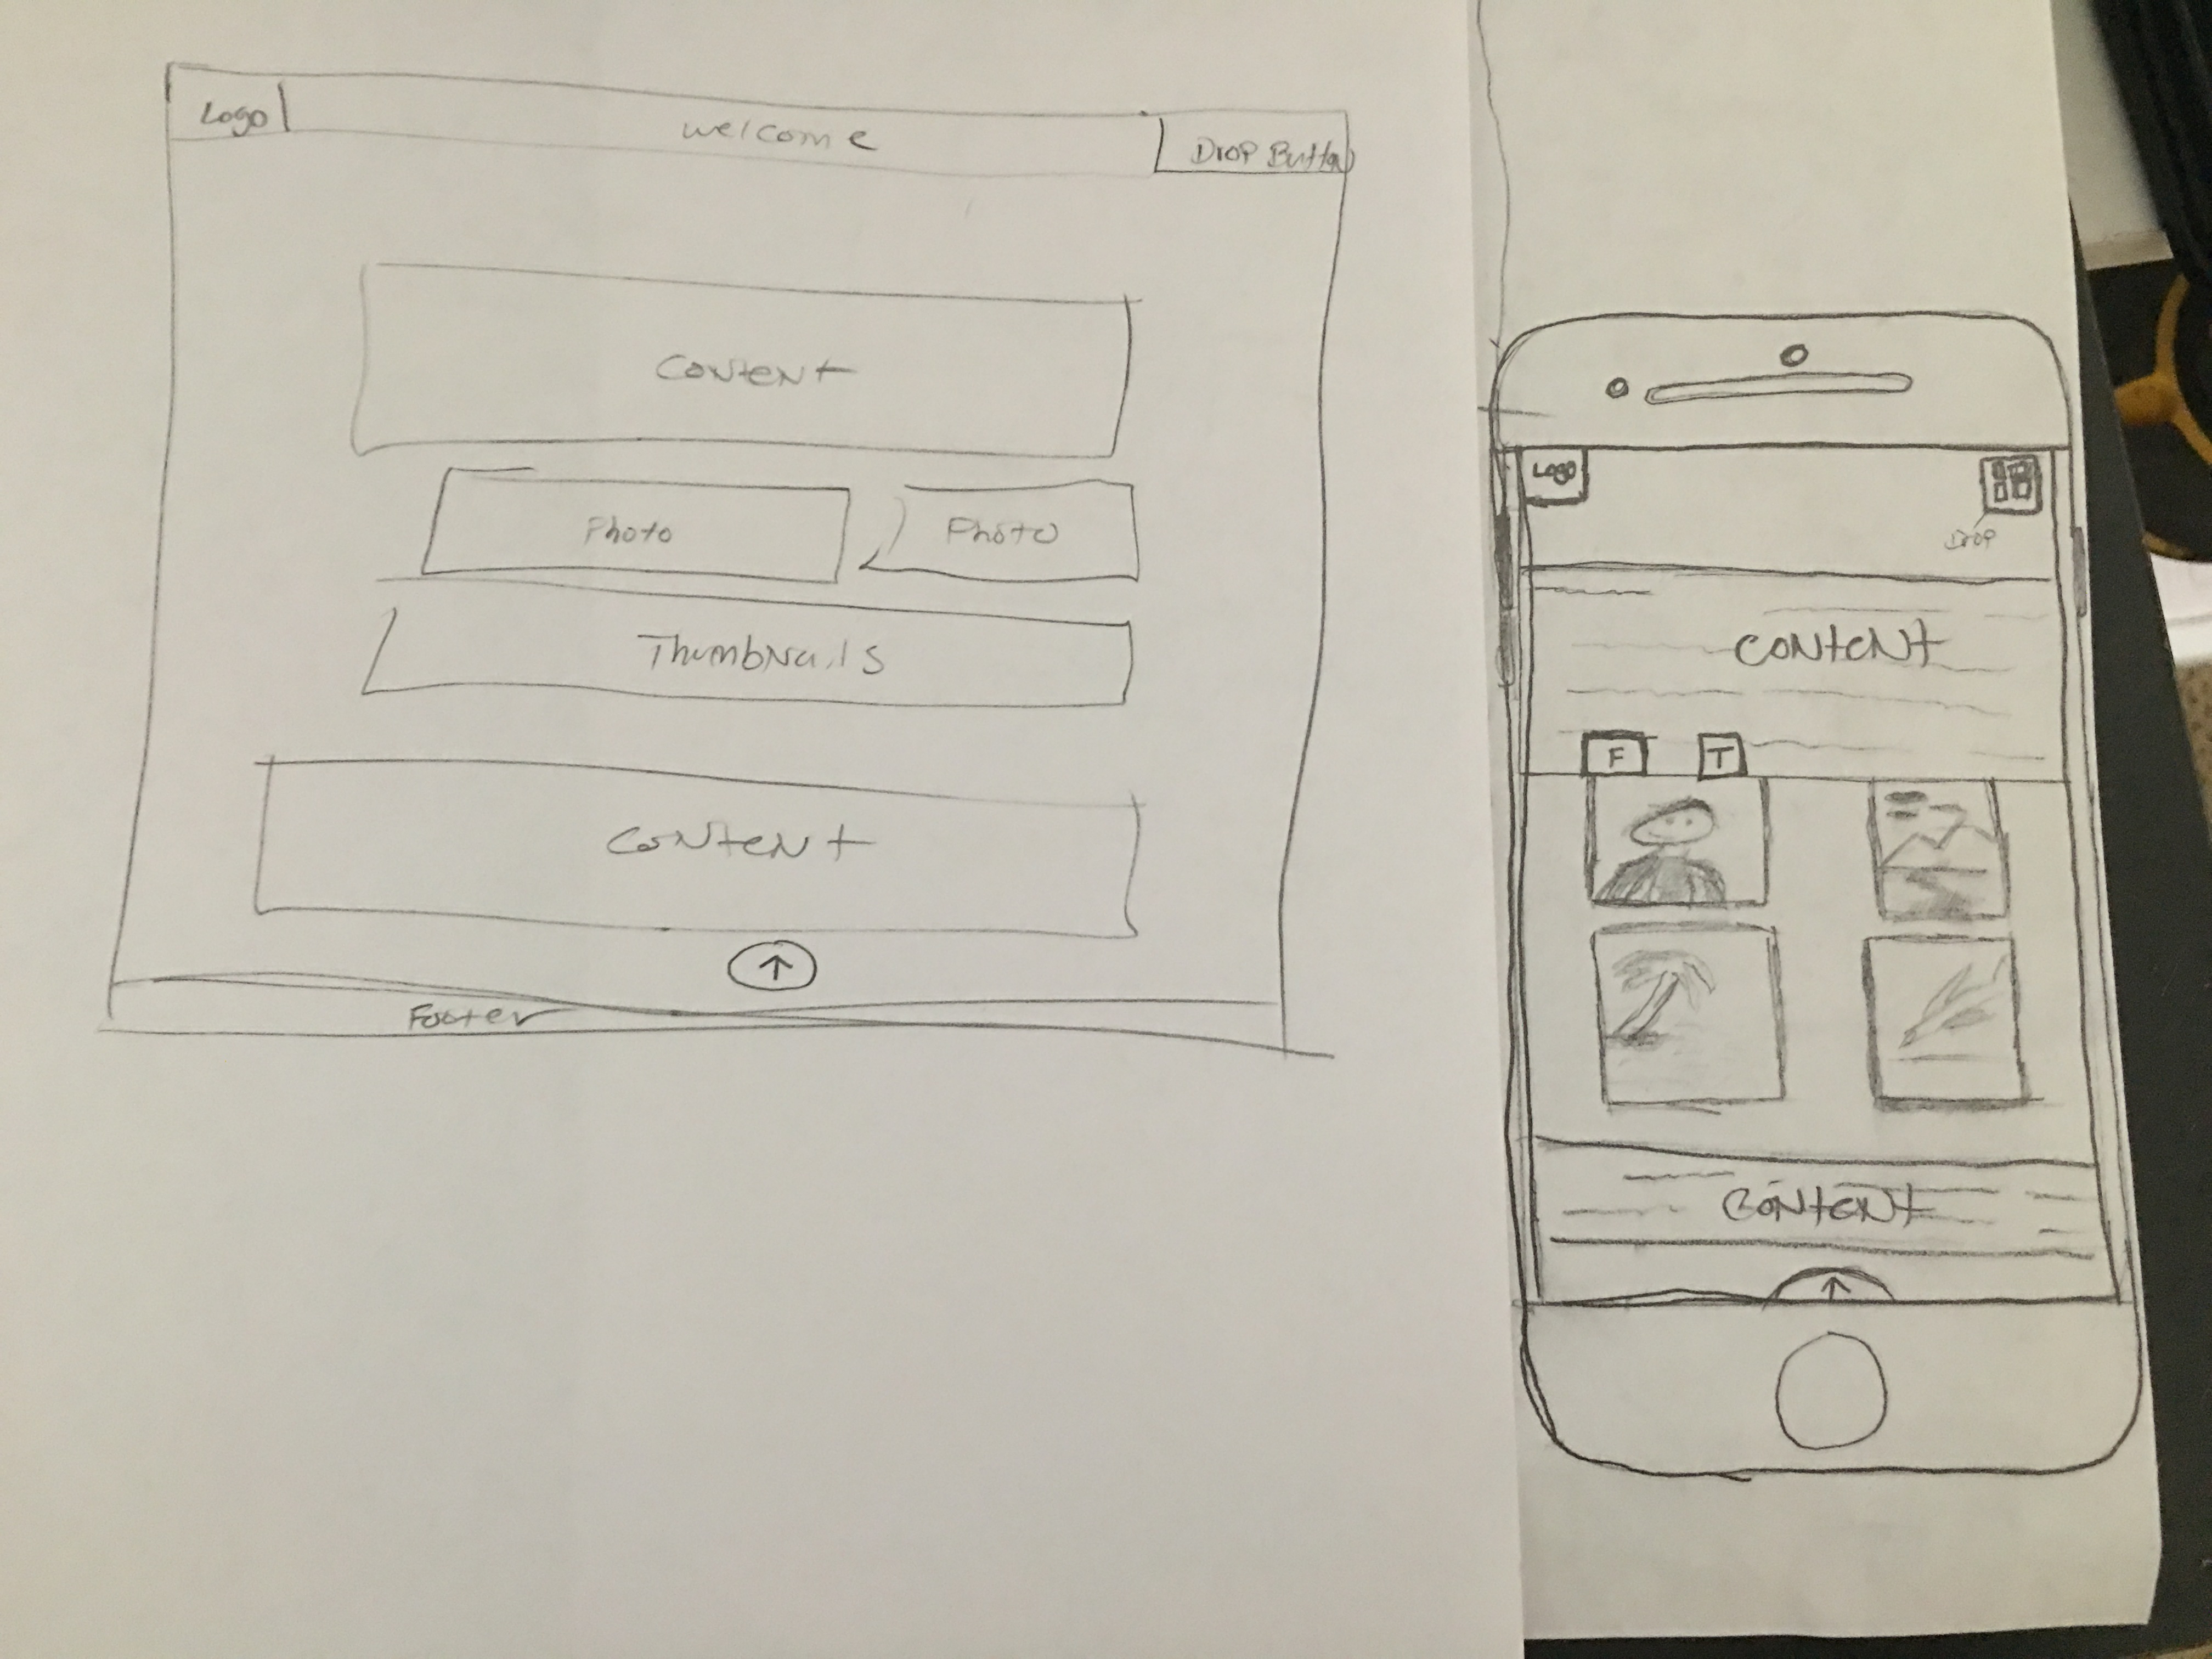 Logo
welcome
Drop Button
Content
Photo
Photo
Thumbnails
Content
Footer
Logo
Drop
Content
F
T
Content